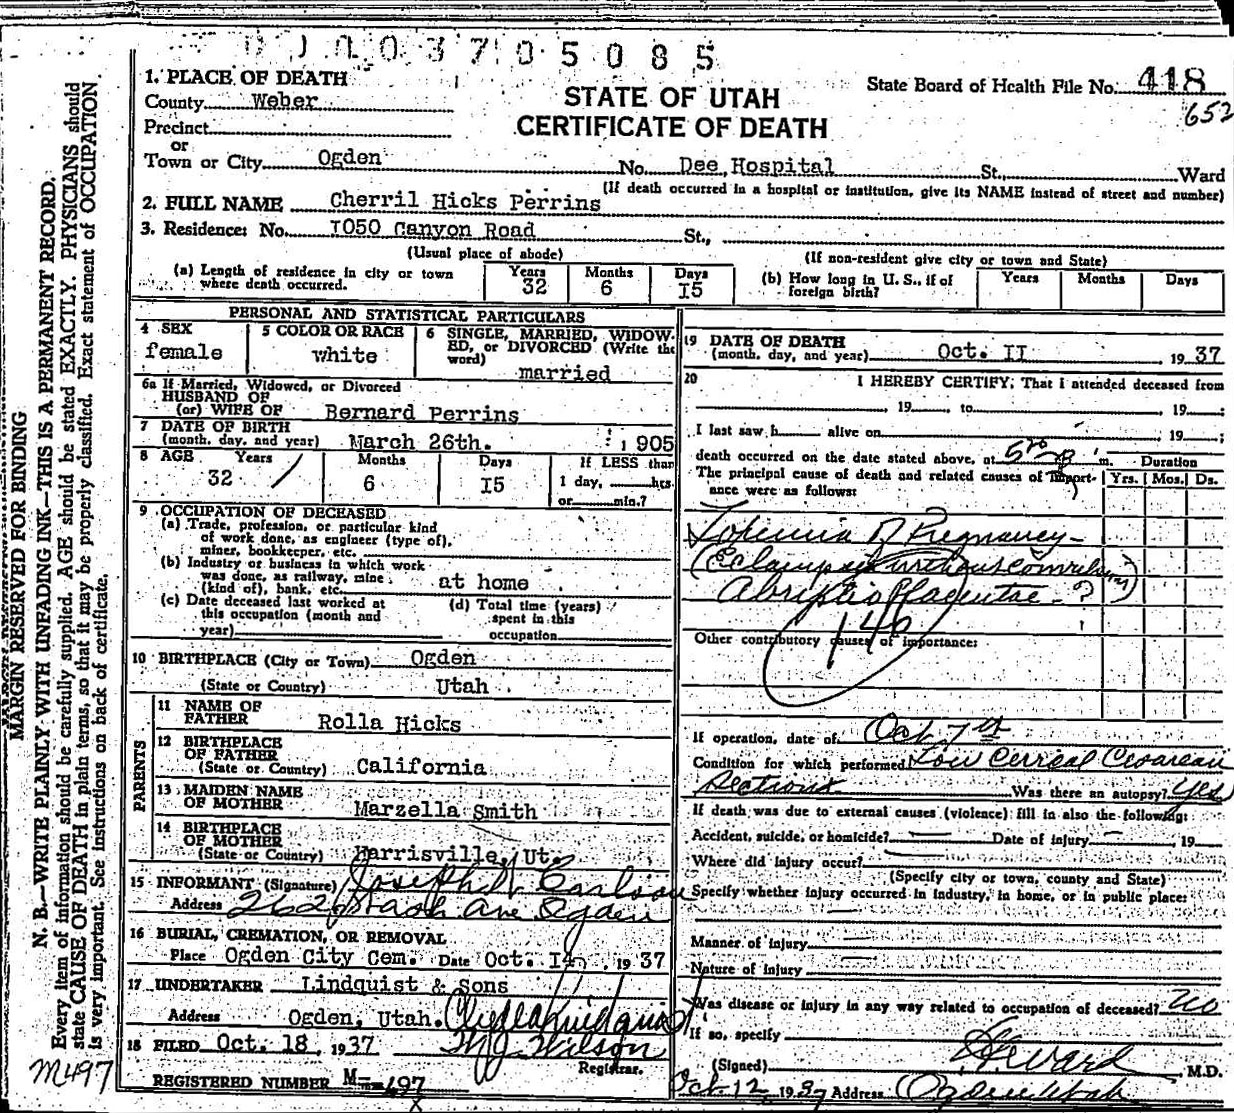 0037 05085
1. PLACE OF DEATH
County Weber
Precinct
or
Town or City Ogden No. Dee Hospital St., Ward
(If death occurred in a hospital or institution, give its NAME instead of street and number)
STATE OF UTAH
CERTIFICATE OF DEATH
State Board of Health File No. 418
652
2. FULL NAME Cherril Hicks Perrins
3. Residence: No. I050 Canyon Road St.,
(Usual place of abode) (If non-resident give city or town and State)
(a) Length of residence in city or town where death occurred. Years 32 Months 6 Days I5
(b) How long in U. S., if of foreign birth? Years Months Days
PERSONAL AND STATISTICAL PARTICULARS
4 SEX female
5 COLOR OR RACE white
6 SINGLE, MARRIED, WIDOWED, or DIVORCED (Write the word) married
6a If Married, Widowed, or Divorced
HUSBAND OF
(or) WIFE OF Bernard Perrins
7 DATE OF BIRTH
(month, day, and year) March 26th. 1905
8 AGE Years 32 Months 6 Days I5 If LESS than 1 day, hrs. or min.?
9 OCCUPATION OF DECEASED
(a) Trade, profession, or particular kind
of work done, as engineer (type of),
miner, bookkeeper, etc.
(b) Industry or business in which work
was done, as railway, mine
(kind of), bank, etc. at home
(c) Date deceased last worked at
this occupation (month and
year)
(d) Total time (years)
spent in this
occupation
10 BIRTHPLACE (City or Town) Ogden
(State or Country) Utah
PARENTS
11 NAME OF
FATHER Rolla Hicks
12 BIRTHPLACE
OF FATHER
(State or Country) California
13 MAIDEN NAME
OF MOTHER Marzella Smith
14 BIRTHPLACE
OF MOTHER
(State or Country) Harrisville, Ut.
15 INFORMANT (Signature) Joseph W Carlson
Address 262 Ave Ogden
16 BURIAL, CREMATION, OR REMOVAL
Place Ogden City Cem. Date Oct. I4, 1937
17 UNDERTAKER Lindquist & Sons
Address Ogden, Utah. Clyde Lindquist
18 FILED Oct. 18, 1937 Wilson
Registrar.
REGISTERED NUMBER M-497
19 DATE OF DEATH
(month, day, and year) Oct. II 1937
20 I HEREBY CERTIFY, That I attended deceased from
, 19 , to , 19 ;
I last saw h alive on , 19 ;
death occurred on the date stated above, at 5 20 m.
The principal cause of death and related causes of importance were as follows:
Duration
Yrs. Mos. Ds.
Toxemia of Pregnancy -
(Eclampsia without convulsion)
Abruptio Placentae - ?
146
Other contributory causes of importance:
If operation, date of Oct 7th
Condition for which performed Low Cervical Cesarean
Section Was there an autopsy? Yes
If death was due to external causes (violence) fill in also the following:
Accident, suicide, or homicide? Date of injury 19
Where did injury occur?
(Specify city or town, county and State)
Specify whether injury occurred in industry, in home, or in public place:
Manner of injury
Nature of injury
Was disease or injury in any way related to occupation of deceased? no
If so, specify
(Signed) Ward M.D.
Oct 12 1937 Address Ogden Utah
MARGIN RESERVED FOR BINDING
N. B.—WRITE PLAINLY WITH UNFADING INK—THIS IS A PERMANENT RECORD.
Every item of information should be carefully supplied. AGE should be stated EXACTLY. PHYSICIANS should
state CAUSE OF DEATH in plain terms, so that it may be properly classified. Exact statement of OCCUPATION
is very important. See instructions on back of certificate.
M497